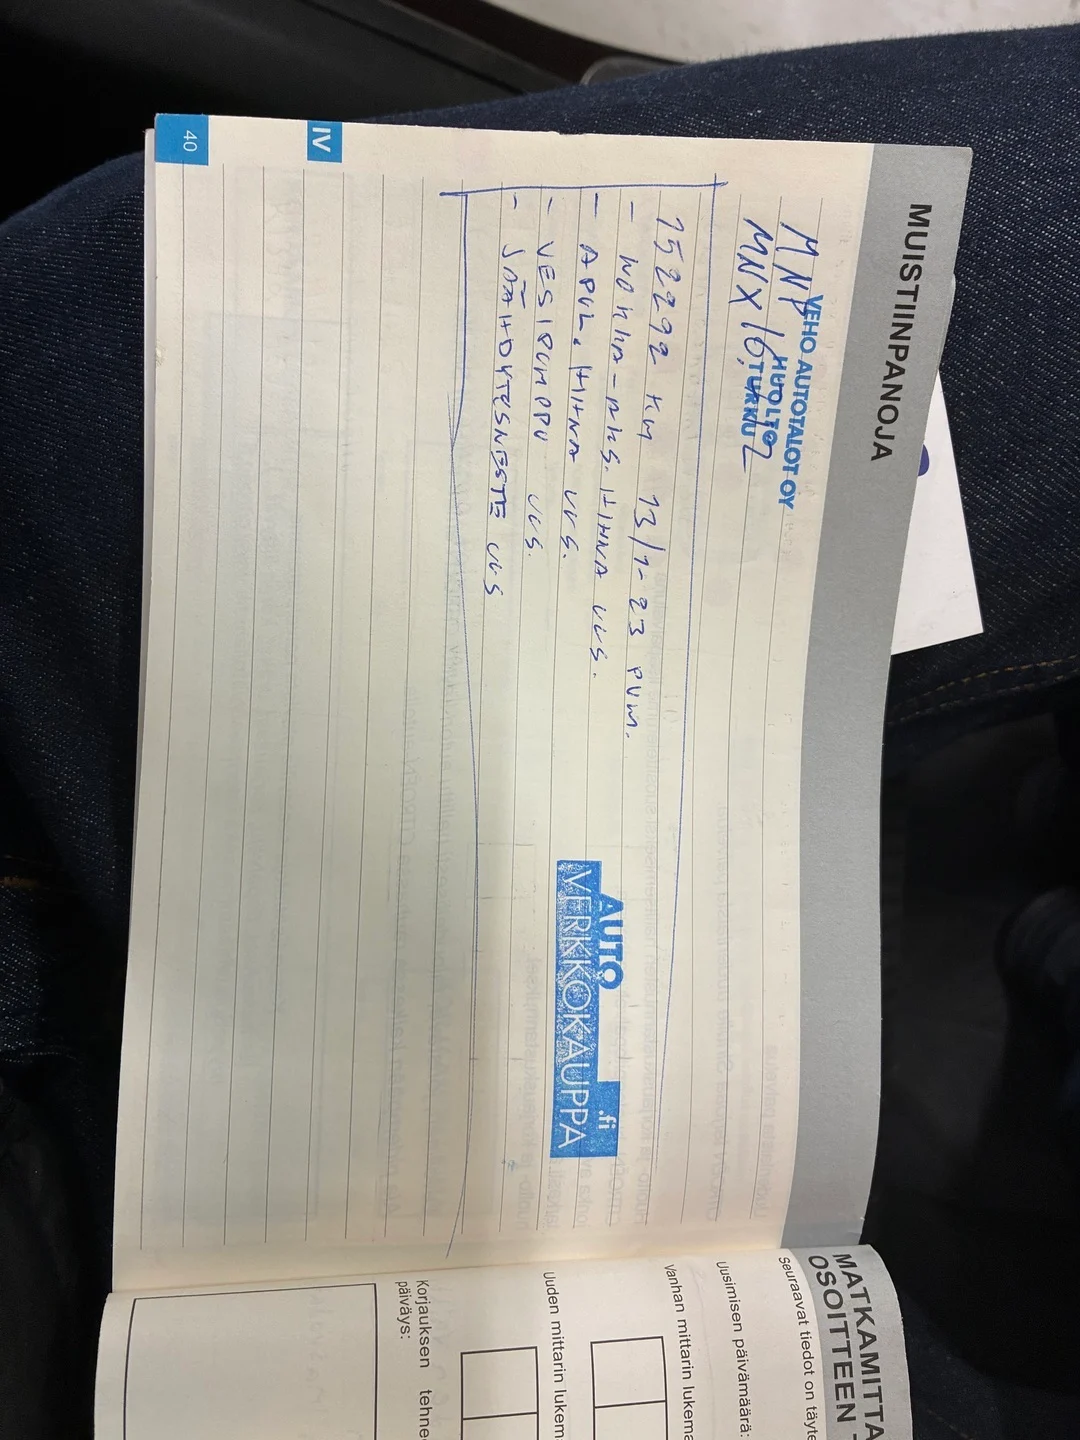 MUISTIINPANOJA
VEHO AUTOTALOT OY
HUOLTO
TURKU
MNX
152292 KM 13/1-23 PVM.
- NOKKA-AKS. HIHNA UUS.
- APUL. HIHNA UUS.
- VESIPUMPPU UUS.
- JÄÄHDYTYSNESTE UUS
AUTO
VERKKOKAUPPA
.fi
IV
40
MATKAMITTA
OSOITTEEN
Seuraavat tiedot on täyte
Uusimisen päivämäärä:
Vanhan mittarin lukema
Uuden mittarin lukem
Korjauksen tehne
päiväys: